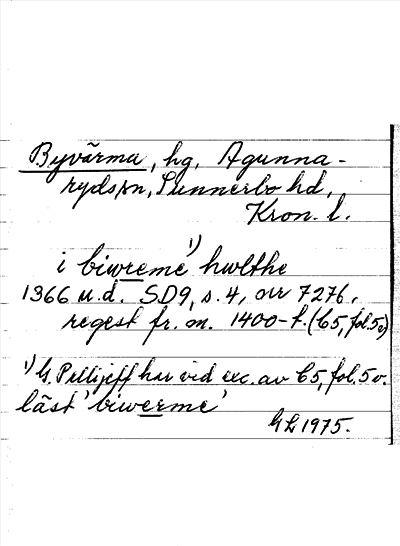 Byvärma, hg, Agunna-
ryds sn, Sunnerbo hd,
Kron. l.
i biwreme¹⁾ hwlthe
1366 u.d. SD9, s. 4, nr 7276,
regest fr. m. 1400-t. (C5, fol. 5v)
¹⁾ G. Pellijeff har vid exc. av C5, fol. 5v.
läst 'biwerme'
GL 1975.